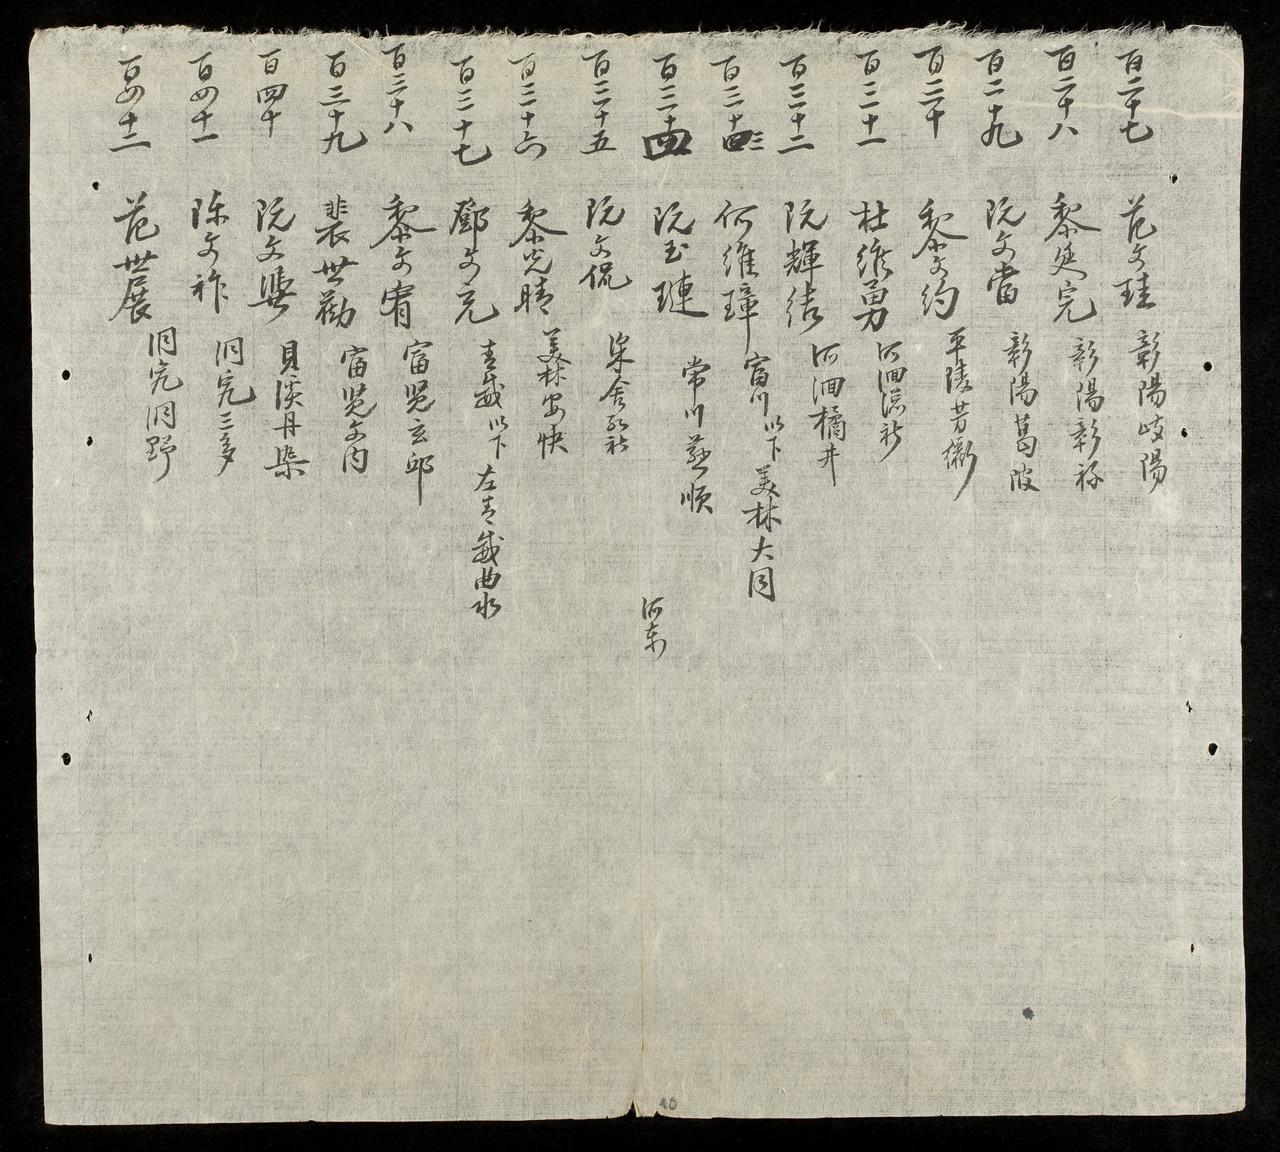 百二十七 范文珪 彰陽岐陽
百二十八 黎廷完 彰陽彰
百二十九 阮文當 彰陽葛陂
百三十 黎文約 平陵芳
百三十一 杜維勇 河洄
百三十二 阮輝結 河洄橘井
百三十三 何維璋 富川以下美林大同
百三十四 阮玉璉 常川 順 河东
百三十五 阮文侃 舍 社
百三十六 黎光晴 美林安快
百三十七 鄧文克 青威以下左青威曲水
百三十八 黎文宥 富覺玄邱
百三十九 裴世勸 富覺文内
百四十 阮文 貝溪丹染
百四十一 陈文祚 洞完三多
百四十二 范世展 洞完洞野
10